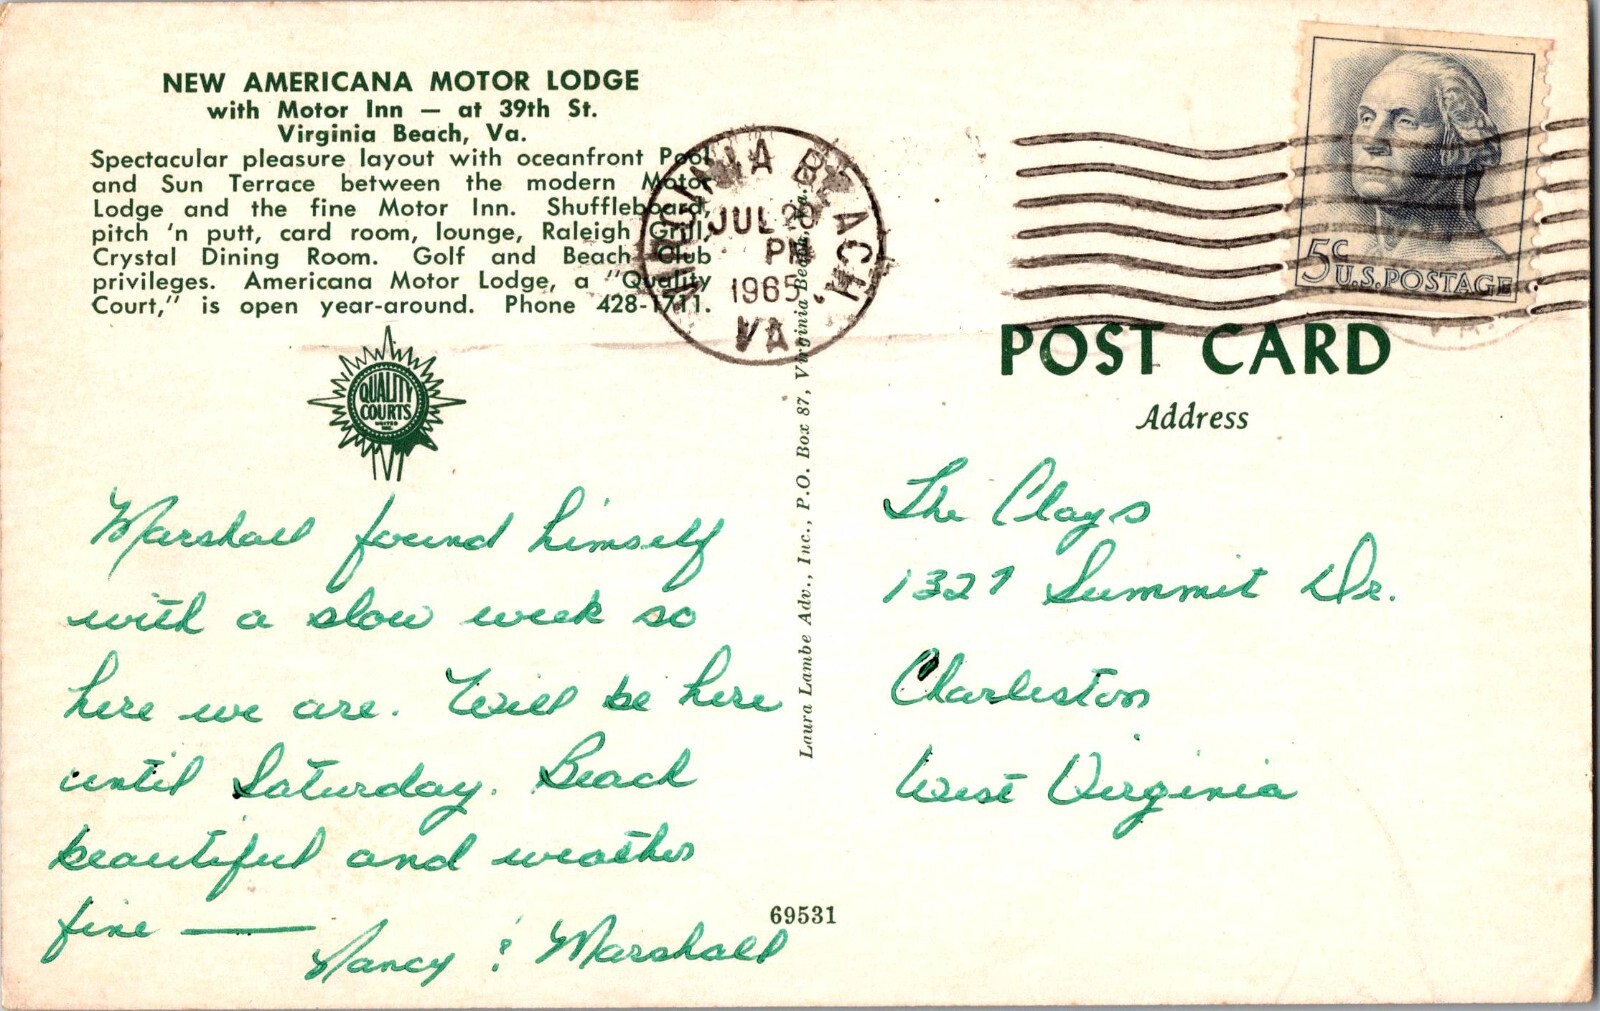 NEW AMERICANA MOTOR LODGE
with Motor Inn — at 39th St.
Virginia Beach, Va.
Spectacular pleasure layout with oceanfront Pool
and Sun Terrace between the modern Motor
Lodge and the fine Motor Inn. Shuffleboard,
pitch 'n putt, card room, lounge, Raleigh Grill,
Crystal Dining Room. Golf and Beach Club
privileges. Americana Motor Lodge, a "Quality
Court," is open year-around. Phone 428-1711.
QUALITY
COURTS
UNITED
INC.
Marshall found himself
with a slow week so
here we are. Will be here
until Saturday. Beach
beautiful and weather
fine —
Nancy & Marshall
VIRGINIA BEACH,
JUL 28
PM
1965
VA.
Laura Lambe Adv., Inc., P.O. Box 87, Virginia Beach, Va.
69531
5c U.S. POSTAGE
POST CARD
Address
The Clays
1327 Summit Dr.
Charleston
West Virginia